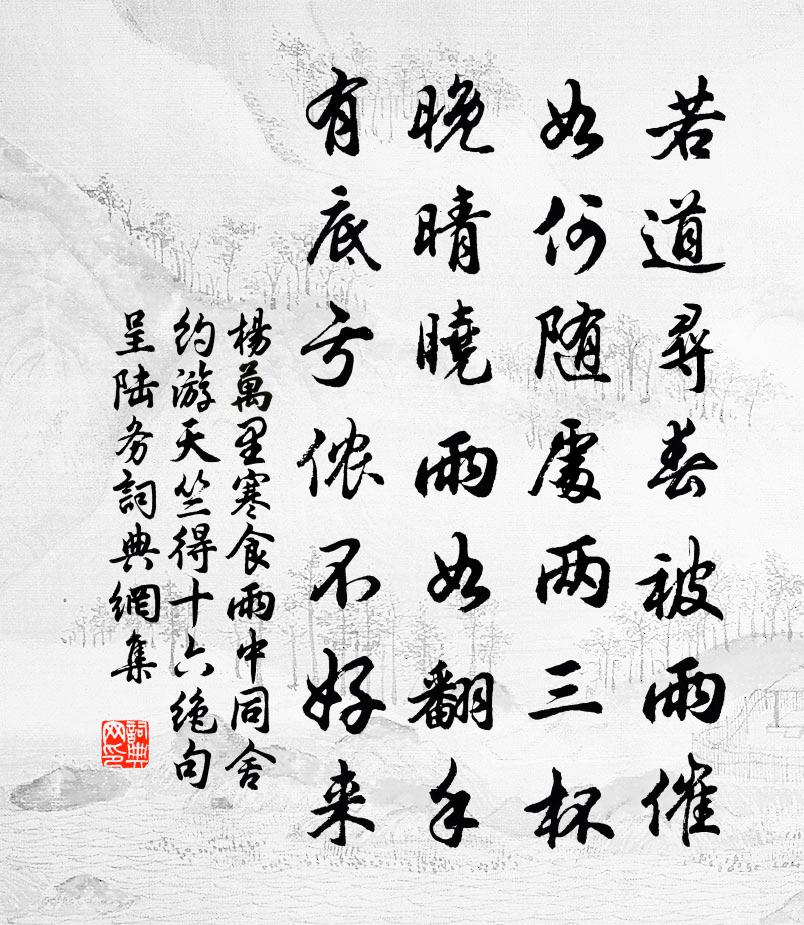 若道尋春被雨催
如何随處两三杯
晚晴曉雨如翻手
有底亏侬不好来
楊萬里寒食雨中同舍
约游天竺得十六绝句
呈陆务詞典網集
詞典网印